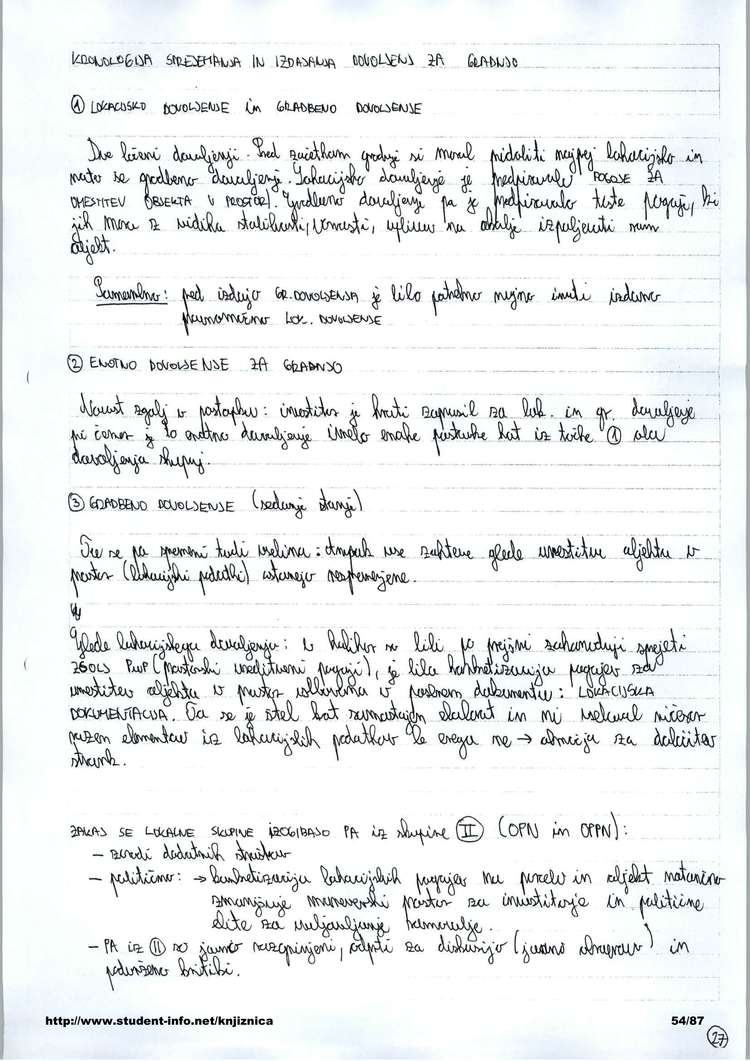 KRONOLOGIJA SPREJEMANJA IN IZDAJANJA DOVOLJENJ ZA GRADNJO
① LOKACIJSKO DOVOLJENJE in GRADBENO DOVOLJENJE
Dve ločeni dovoljenji. Pred začetkom gradnje si moral pridobiti najprej lokacijsko in
nato še gradbeno dovoljenje. Lokacijsko dovoljenje je predpisovalo POGOJE ZA
UMESTITEV OBJEKTA V PROSTOR. Gradbeno dovoljenje pa je predpisovalo tiste pogoje, ki
jih mora z vidika stabilnosti, varnosti, vplivov na okolje izpoljeniti sam
objekt.
Pomembno: pred izdajo GR.DOVOLJENJA je bilo potrebno nujno imeti izdano
pravnomočno LOK. DOVOLJENJE
② ENOTNO DOVOLJENJE ZA GRADNJO
Novost zgolj v postopku: investitor je hkrati zaprosil za lok. in gr. dovoljenje
pri čemer je to enotno dovoljenje imelo enake posledice kot iz točke ① oba
dovoljenja skupaj.
③ GRADBENO DOVOLJENJE (sedanje stanje)
Tu se pa spremeni tudi vsebina: ampak vse zahteve glede umestitve objekta v
prostor (lokacijski podatki) ostanejo nespremenjene.
Glede lokacijskega dovoljenja: v kolikor so bili po prejšnji zakonodaji sprejeti
ZGOLJ PUP (prostorski ureditveni pogoji), je bila konkretizacija pogojev za
umestitev objekta v prostor v posebnem dokumentu: LOKACIJSKA
DOKUMENTACIJA. Ta se je štel kot samostojen elaborat in ni vseboval ničesar
razen elementov iz lokacijskih podatkov le enega ne → območja za določitev
strank.
ZAKAJ SE LOKALNE SKUPINE IZOGIBAJO PA iz skupine Ⅱ (OPN in OPPN):
– zaradi dodatnih stroškov
– politično: → konkretizacija lokacijskih pogojev na parcelo in objekt natančno
zmanjšuje manevrski prostor za investitorje in politične
elite za uveljavljanje
– PA iz Ⅱ so javno razgrnjeni, odprti za diskusijo (javno obravnavo) in
podvrženo kritiki.
http://www.student-info.net/knjiznica
54/87
27